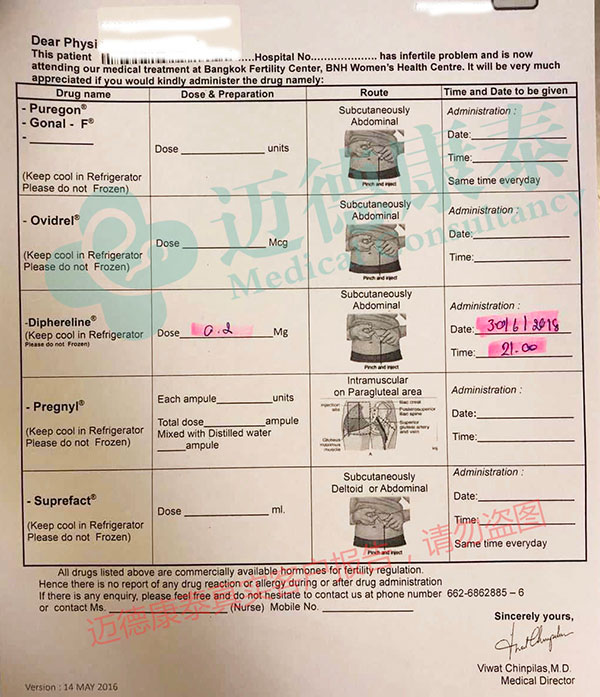 Dear Physi
This patient .....Hospital No................... has infertile problem and is now
attending our medical treatment at Bangkok Fertility Center, BNH Women's Health Centre. It will be very much
appreciated if you would kindly administer the drug namely:
Drug name Dose & Preparation Route Time and Date to be given
- Puregon®
- Gonal - F®
-
(Keep cool in Refrigerator
Please do not Frozen)
Dose units
Subcutaneously
Abdominal
Pinch and inject
Administration :
Date:
Time:
Same time everyday
- Ovidrel®
(Keep cool in Refrigerator
Please do not Frozen)
Dose Mcg
Subcutaneously
Abdominal
Pinch and inject
Administration :
Date:
Time:
-Diphereline®
(Keep cool in Refrigerator
Please do not Frozen)
Dose 0.2 Mg
Subcutaneously
Abdominal
Pinch and inject
Administration :
Date: 30/6/2018
Time: 21.00
- Pregnyl®
(Keep cool in Refrigerator
Please do not Frozen)
Each ampule units
Total dose ampule
Mixed with Distilled water
ampule
Intramuscular
on Paragluteal area
Injection
site
Gluteus
maximus
muscle
Iliac crest
Posterosuperior
iliac spine
Superior
gluteal artery
and vein
Administration :
Date:
Time:
- Suprefact®
(Keep cool in Refrigerator
Please do not Frozen)
Dose ml.
Subcutaneously
Deltoid or Abdominal
Pinch and inject
Administration :
Date:
Time:
Same time everyday
All drugs listed above are commercially available hormones for fertility regulation.
Hence there is no report of any drug reaction or allergy during or after drug administration
If there is any enquiry, please feel free and do not hesitate to contact us at phone number 662-6862885 – 6
or contact Ms. (Nurse) Mobile No.
Sincerely yours,
Viwat Chinpilas,M.D.
Medical Director
Version : 14 MAY 2016
迈德康泰
Medical Consultancy
迈德康泰真实客户报告，请勿盗图